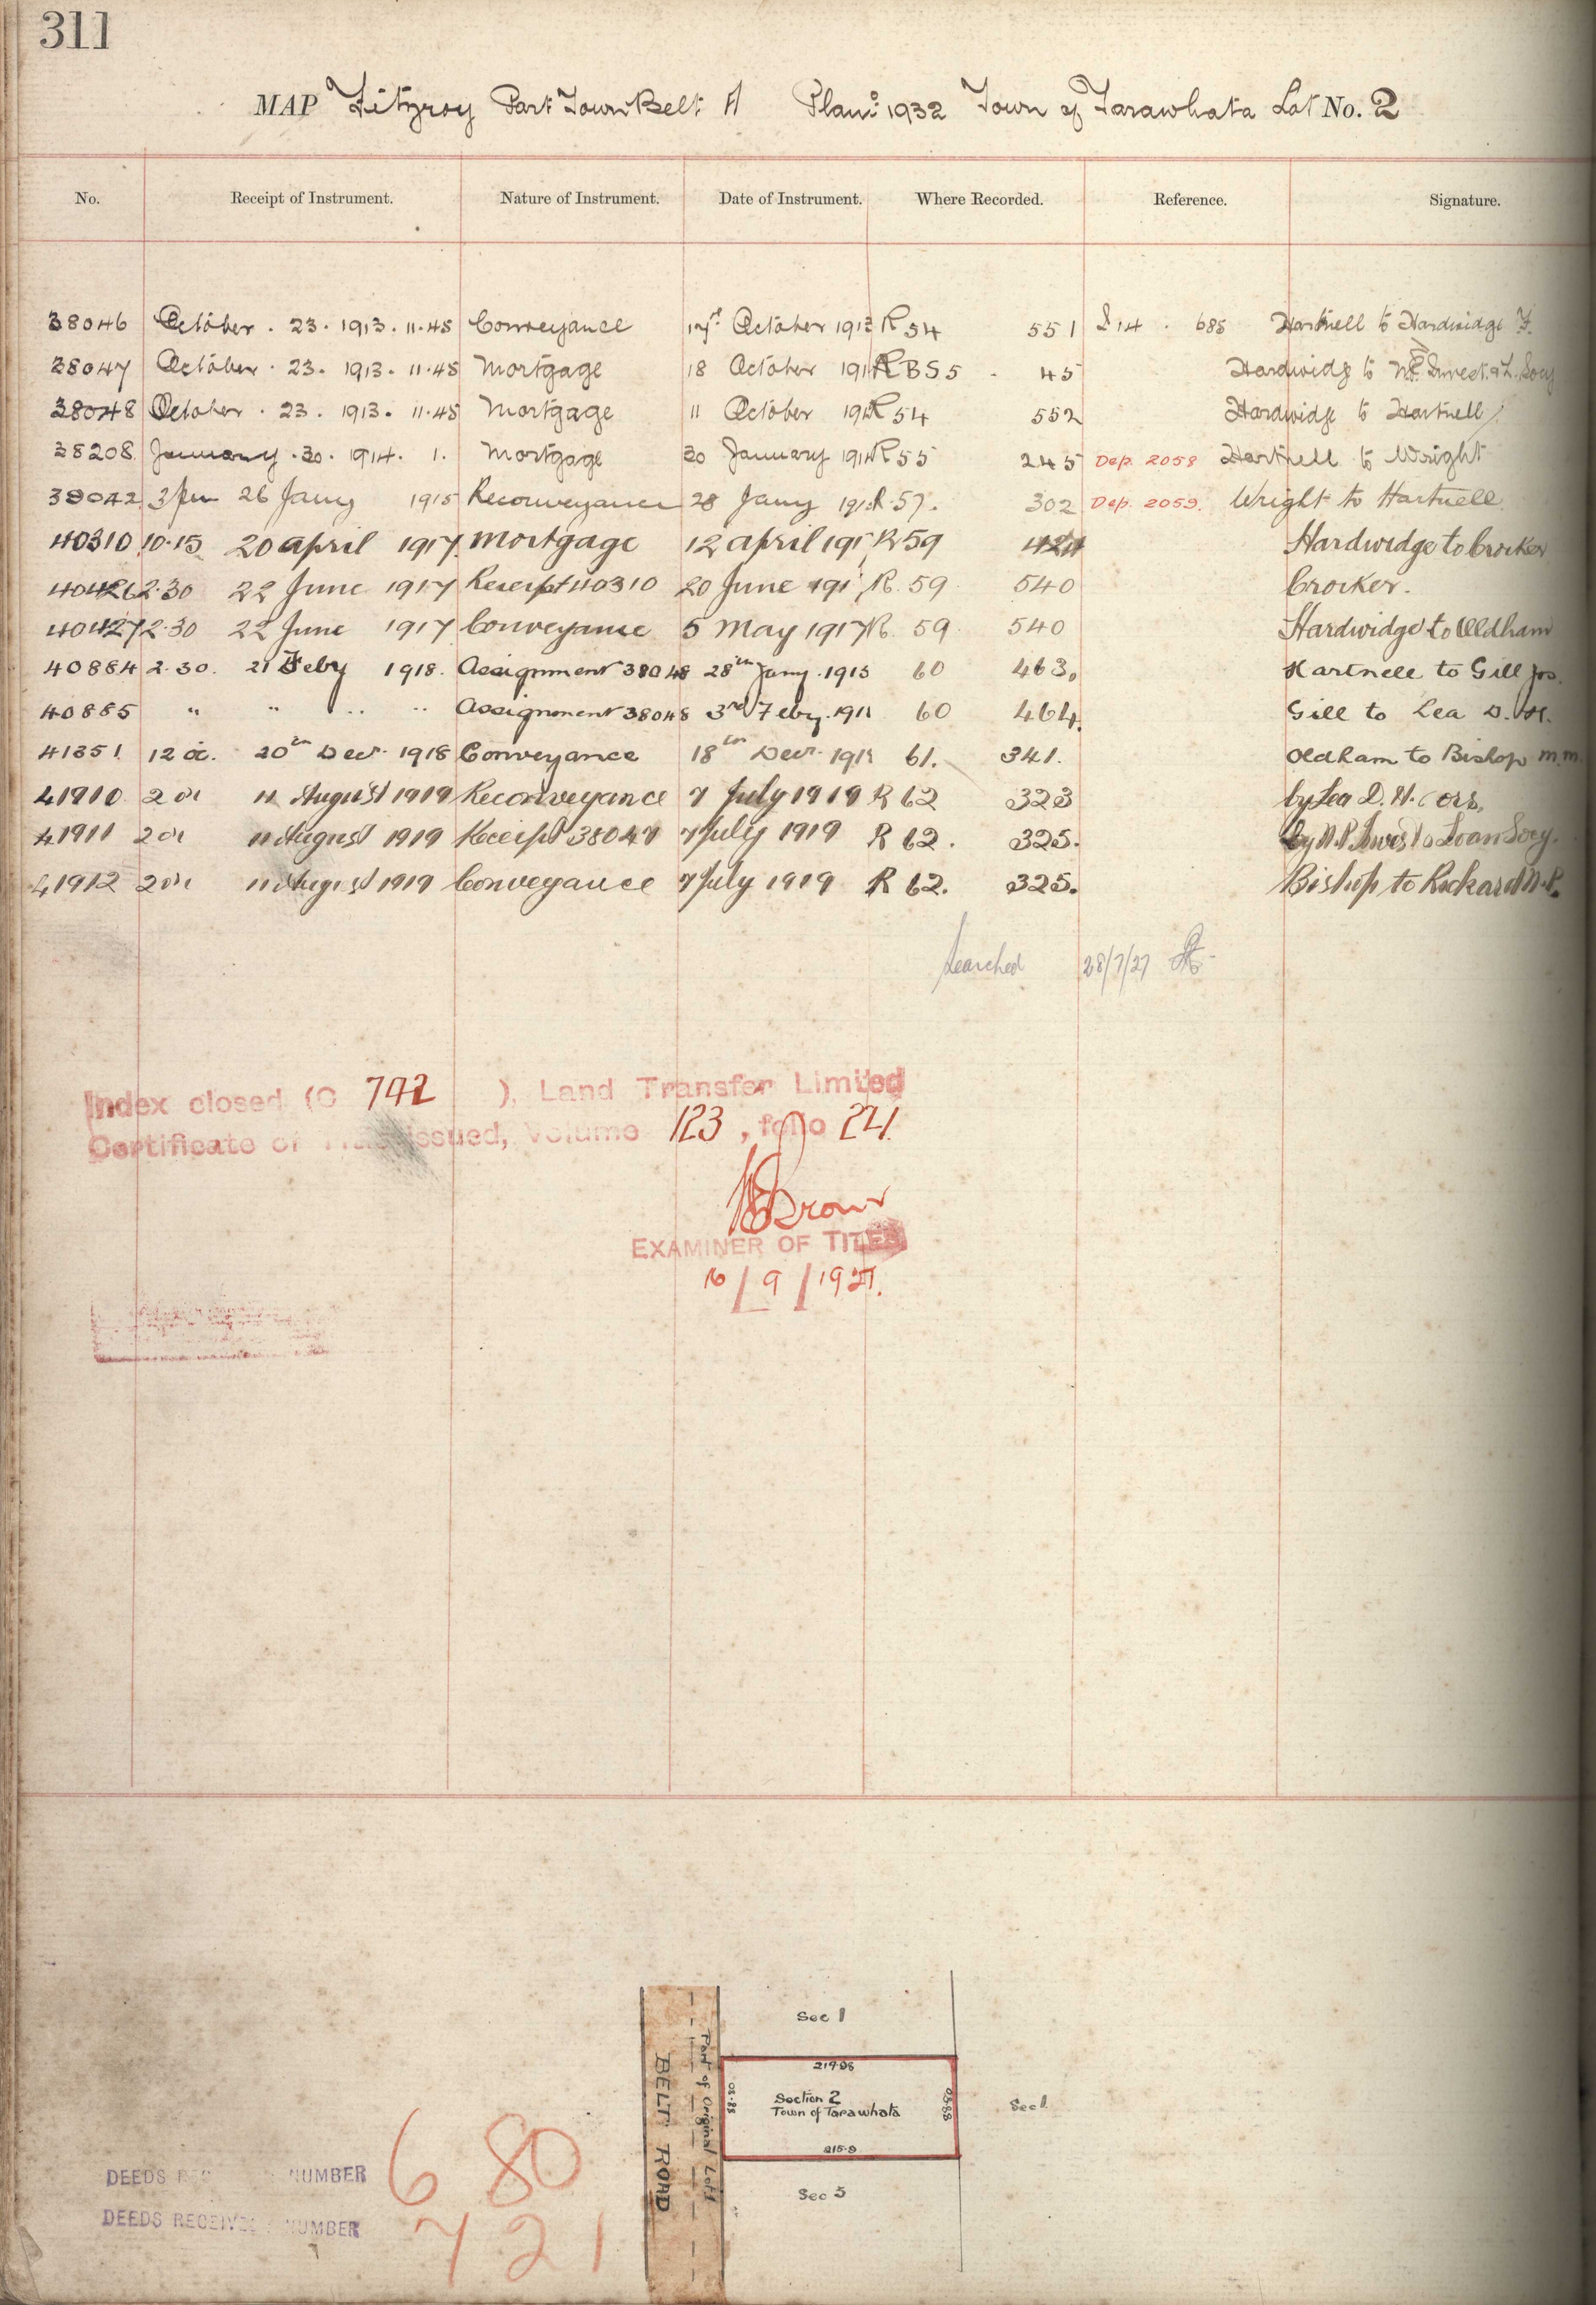 311
MAP Fitzroy Part Town Belt A Plan: 1932 Town of Tarawhata Lot No. 2
No. Receipt of Instrument. Nature of Instrument. Date of Instrument. Where Recorded. Reference. Signature.
38046 October . 23 . 1913 . 11.45 Conveyance October 1913 R 54 551 685 Hartnell to Hardwidge F.
38047 October . 23 . 1913 . 11.45 Mortgage 18 October 45 Hardwidge to
38048 October . 23 . 1913 . 11.45 Mortgage 11 October R 54 552 Hardwidge to Hartnell
38208 January . 30 . 1914 . 1. Mortgage 30 January 1914 R 55 245 Dep. 2058 Hartnell to Wright
39042 3 pm 26 Jany 1915 Reconveyance 28 Jany R. 57. 302 Dep. 2059. Wright to Hartnell
40310 10.15 20 april 1917 Mortgage 12 april R 59 424 Hardwidge to Crocker
40426 2.30 22 June 1917 Receipt 40310 20 June R. 59 540 Crocker.
40427 2.30 22 June 1917 Conveyance 5 May 1917 R. 59 540 Hardwidge to Oldham
40884 2.30. 21 Feby 1918. Assignment 38048 28th Jany. 1915 60 463. Hartnell to Gill Jos.
40885 " " " " Assignment 38048 3rd Feby. 60 464. Gill to Lea D. H.
41351 12 oc. 20th Decr. 1918 Conveyance 18th Decr. 61. 341. Oldham to Bishop M.M.
41910 2 oc 11 August 1919 Reconveyance 7 July 1919 R 62 323 by Lea D. H. & ors.
41911 2 oc 11 August 1919 Receipt 38047 7 July 1919 R 62. 325. by N.P. Invest & Loan Socy.
41912 2 oc 11 August 1919 Conveyance 7 July 1919 R 62. 325. Bishop to Rickard N.P.
Searched 28/7/27
Index closed (C 742 ), Land Transfer Limited
Certificate of Title issued, Volume 123, folio 221.
Brown
EXAMINER OF TITLES
16/9/1927.
Sec 1
219.98
Section 2
Town of Tarawhata
Sec 1
215.9
Sec 3
BELT ROAD
Part of Original
DEEDS RECEIVED NUMBER 680
DEEDS RECEIVED NUMBER 721